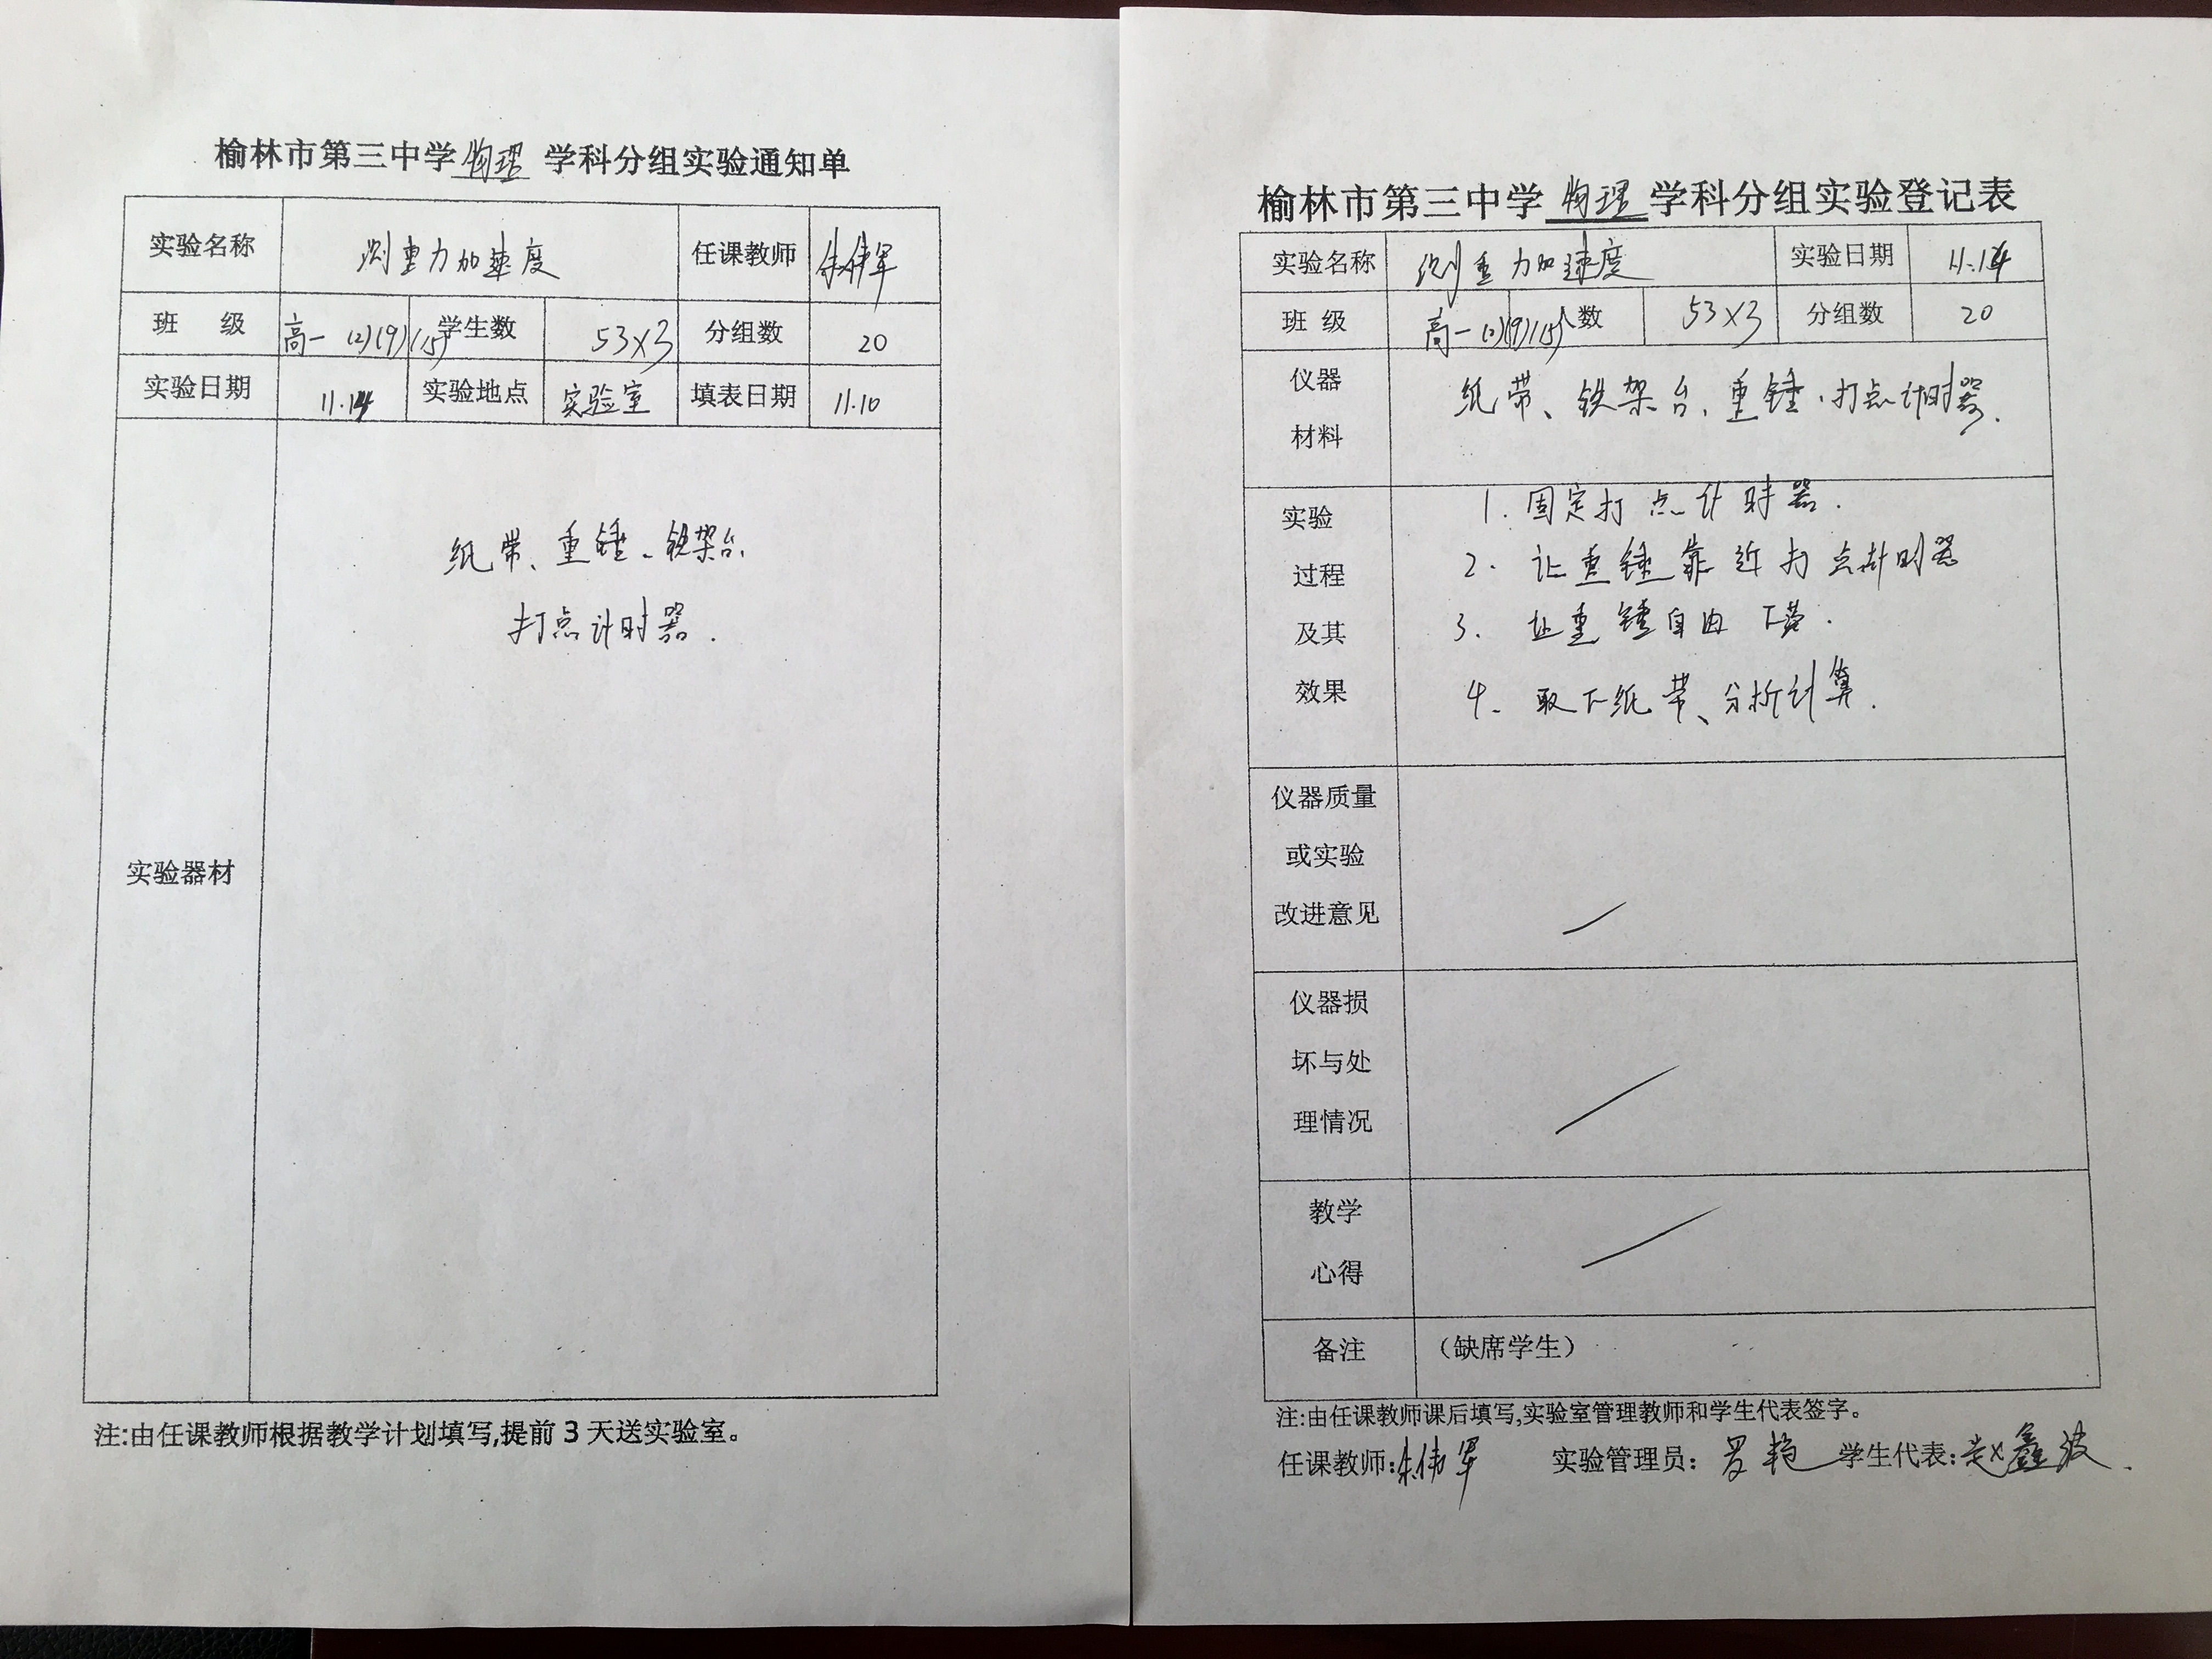 榆林市第三中学物理 学科分组实验通知单
实验名称 测重力加速度 任课教师 朱伟军
班 级 高一(2)(9)(15) 学生数 53×3 分组数 20
实验日期 11.14 实验地点 实验室 填表日期 11.10
实验器材
纸带、重锤、铁架台、
打点计时器.
注:由任课教师根据教学计划填写,提前3天送实验室。
榆林市第三中学 物理 学科分组实验登记表
实验名称 测重力加速度 实验日期 11.14
班 级 高一(2)(9)(15) 人数 53×3 分组数 20
仪器
材料
纸带、铁架台、重锤、打点计时器.
实验
过程
及其
效果
1. 固定打点计时器.
2. 让重锤靠近打点计时器
3. 让重锤自由下落.
4. 取下纸带、分析计算.
仪器质量
或实验
改进意见
仪器损
坏与处
理情况
教学
心得
备注 (缺席学生)
注:由任课教师课后填写,实验室管理教师和学生代表签字。
任课教师:朱伟军 实验管理员: 罗艳 学生代表:赵鑫波.